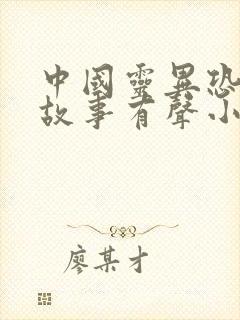 中國靈異恐
故事有聲小
廖某才